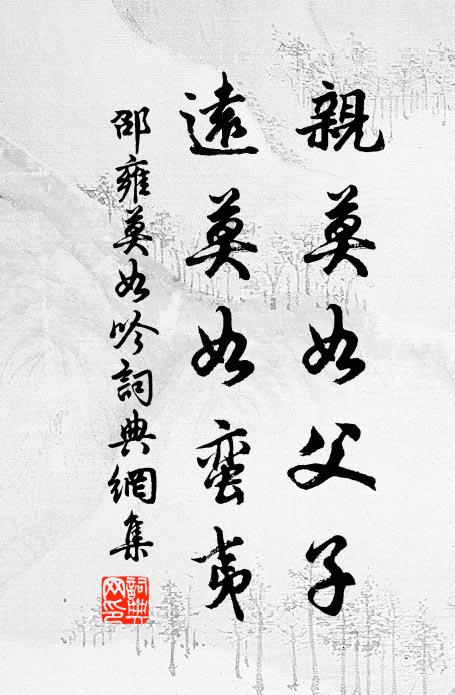 親莫如父子
遠莫如蛮夷
邵雍莫如吟詞典網集
詞典
网印